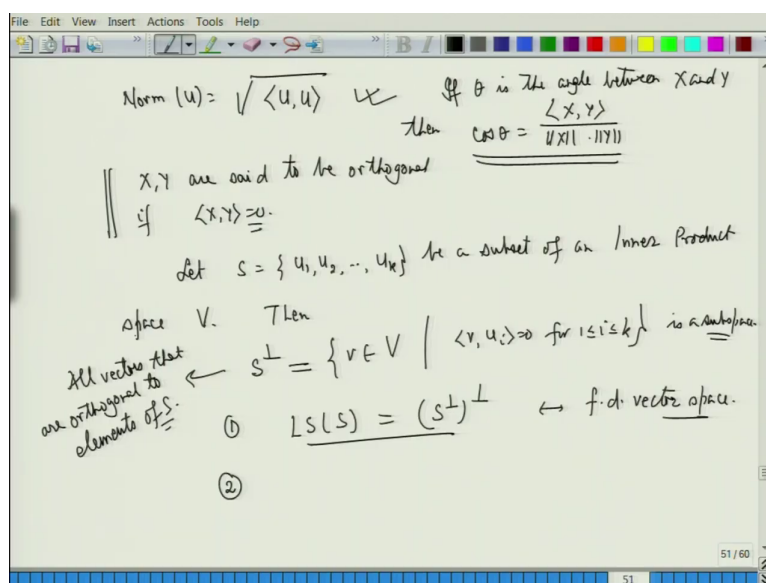 File Edit View Insert Actions Tools Help
Norm (u) = √<u,u>
If θ is the angle between X and Y
then cos θ = <X,Y> / ||X|| . ||Y||
X,Y are said to be orthogonal
if <X,Y> = 0.
Let S = { u1, u2, .., uk} be a subset of an Inner Product
space V. Then
S⊥ = { v ∈ V | <v, ui> = 0 for 1≤i≤k} is a subspace.
All vectors that
are orthogonal to
elements of S.
① LS(S) = (S⊥)⊥ ↔ f.d. vector space.
②
51 / 60
51